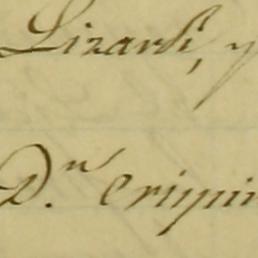 Lizardi, y
D.n Crispin